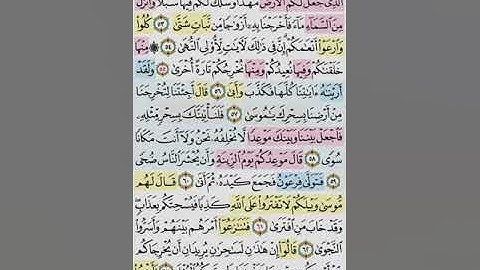 ٱلَّذِى جَعَلَ لَكُمُ ٱلْأَرْضَ مَهْدًا وَسَلَكَ لَكُمْ فِيهَا سُبُلًا وَأَنزَلَ
مِنَ ٱلسَّمَآءِ مَآءً فَأَخْرَجْنَا بِهِۦٓ أَزْوَٰجًا مِّن نَّبَاتٍ شَتَّىٰ ٥٣ كُلُوا۟
وَٱرْعَوْا۟ أَنْعَـٰمَكُمْ إِنَّ فِى ذَٰلِكَ لَـَٔايَـٰتٍ لِّأُو۟لِى ٱلنُّهَىٰ ٥٤ ۞ مِنْهَا
خَلَقْنَـٰكُمْ وَفِيهَا نُعِيدُكُمْ وَمِنْهَا نُخْرِجُكُمْ تَارَةً أُخْرَىٰ ٥٥ وَلَقَدْ
أَرَيْنَـٰهُ ءَايَـٰتِنَا كُلَّهَا فَكَذَّبَ وَأَبَىٰ ٥٦ قَالَ أَجِئْتَنَا لِتُخْرِجَنَا
مِنْ أَرْضِنَا بِسِحْرِكَ يَـٰمُوسَىٰ ٥٧ فَلَنَأْتِيَنَّكَ بِسِحْرٍ مِّثْلِهِۦ
فَٱجْعَلْ بَيْنَنَا وَبَيْنَكَ مَوْعِدًا لَّا نُخْلِفُهُۥ نَحْنُ وَلَآ أَنتَ مَكَانًا
سُوًى ٥٨ قَالَ مَوْعِدُكُمْ يَوْمُ ٱلزِّينَةِ وَأَن يُحْشَرَ ٱلنَّاسُ ضُحًى
٥٩ فَتَوَلَّىٰ فِرْعَوْنُ فَجَمَعَ كَيْدَهُۥ ثُمَّ أَتَىٰ ٦٠ قَالَ لَهُم
مُّوسَىٰ وَيْلَكُمْ لَا تَفْتَرُوا۟ عَلَى ٱللَّهِ كَذِبًا فَيُسْحِتَكُم بِعَذَابٍ
وَقَدْ خَابَ مَنِ ٱفْتَرَىٰ ٦١ فَتَنَـٰزَعُوٓا۟ أَمْرَهُم بَيْنَهُمْ وَأَسَرُّوا۟
ٱلنَّجْوَىٰ ٦٢ قَالُوٓا۟ إِنْ هَـٰذَٰنِ لَسَـٰحِرَٰنِ يُرِيدَانِ أَن يُخْرِجَاكُم